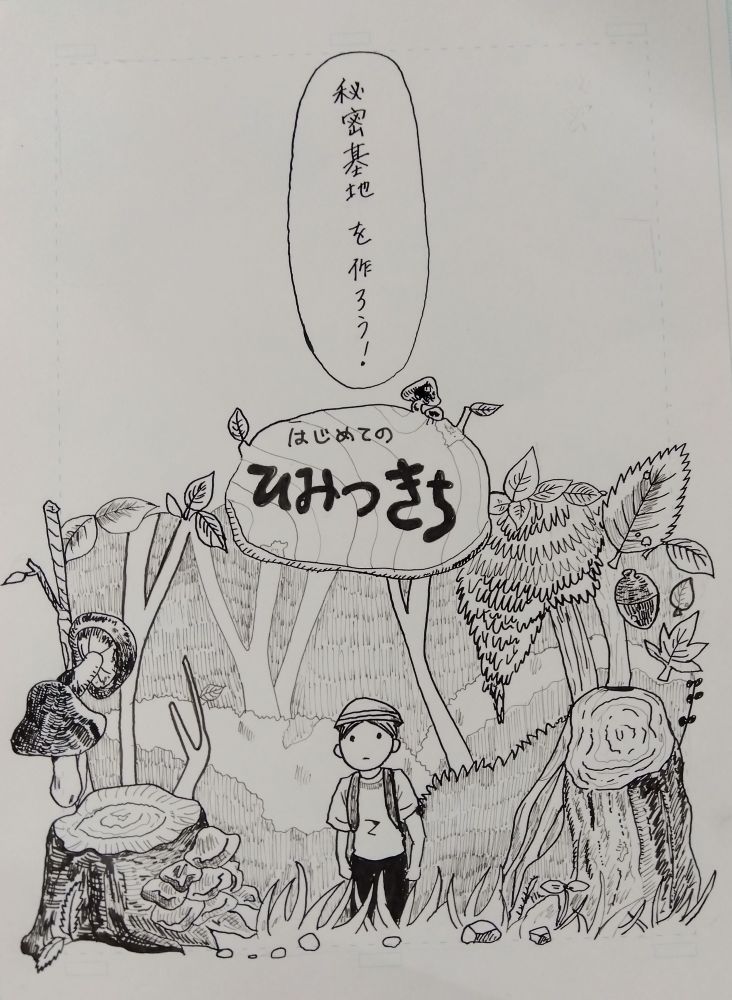 秘密基地を作ろう！
はじめての
ひみつきち